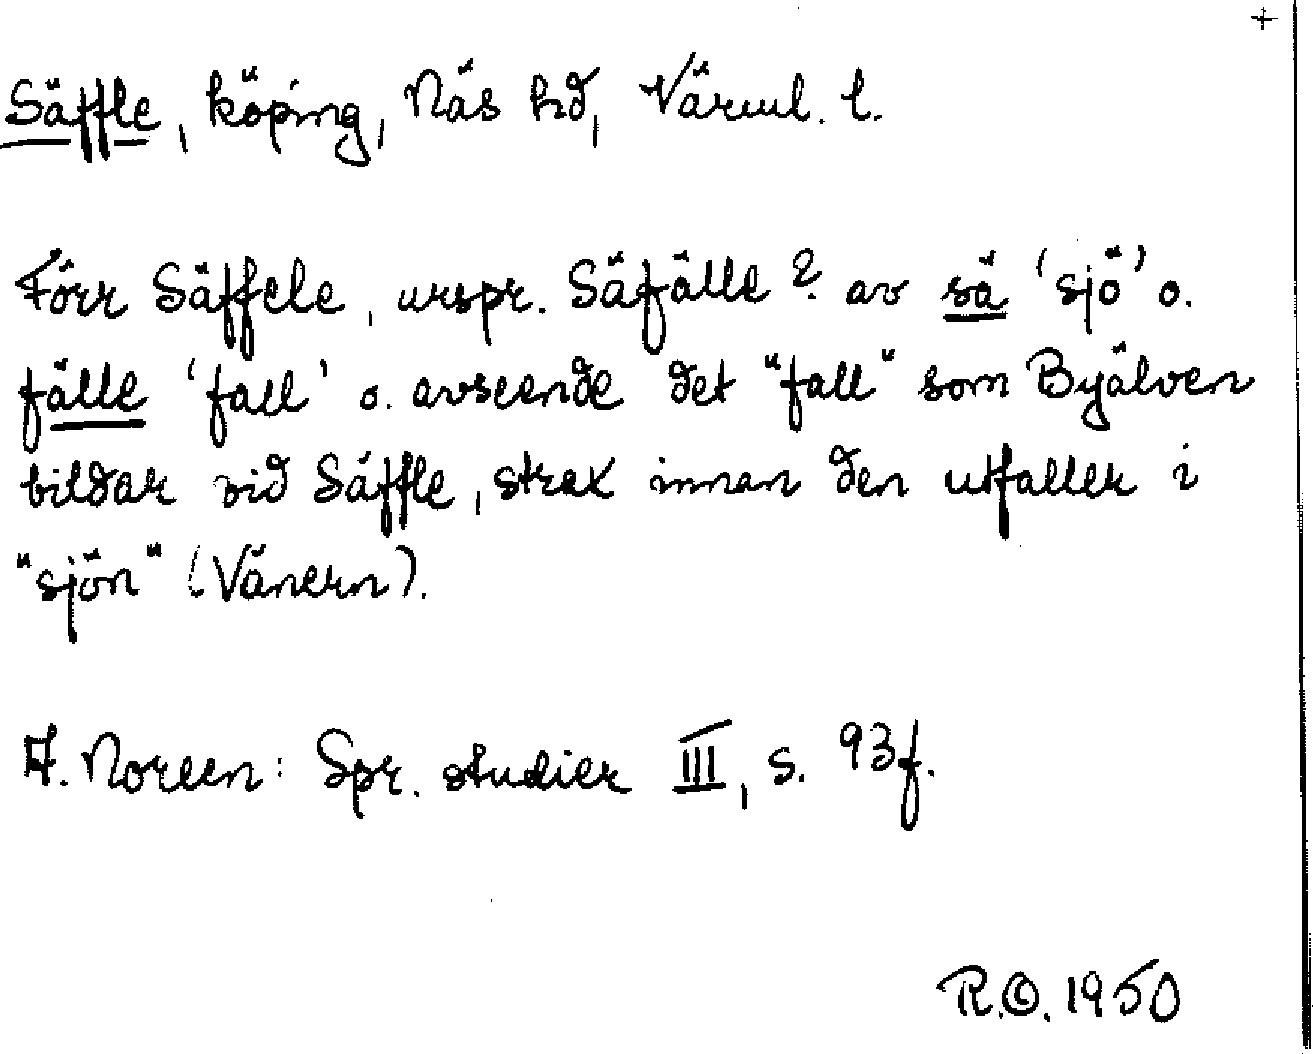 +
Säffle, köping, Näs hd, Värml. l.
Förr Säffele, urspr. Säfälle? av sä 'sjö' o.
fälle 'fall' o. avseende det "fall" som Byälven
bildar vid Säffle, strax innan den utfaller i
"sjön" (Vänern).
A. Noreen: Spr. studier III, s. 93f.
R.O. 1950